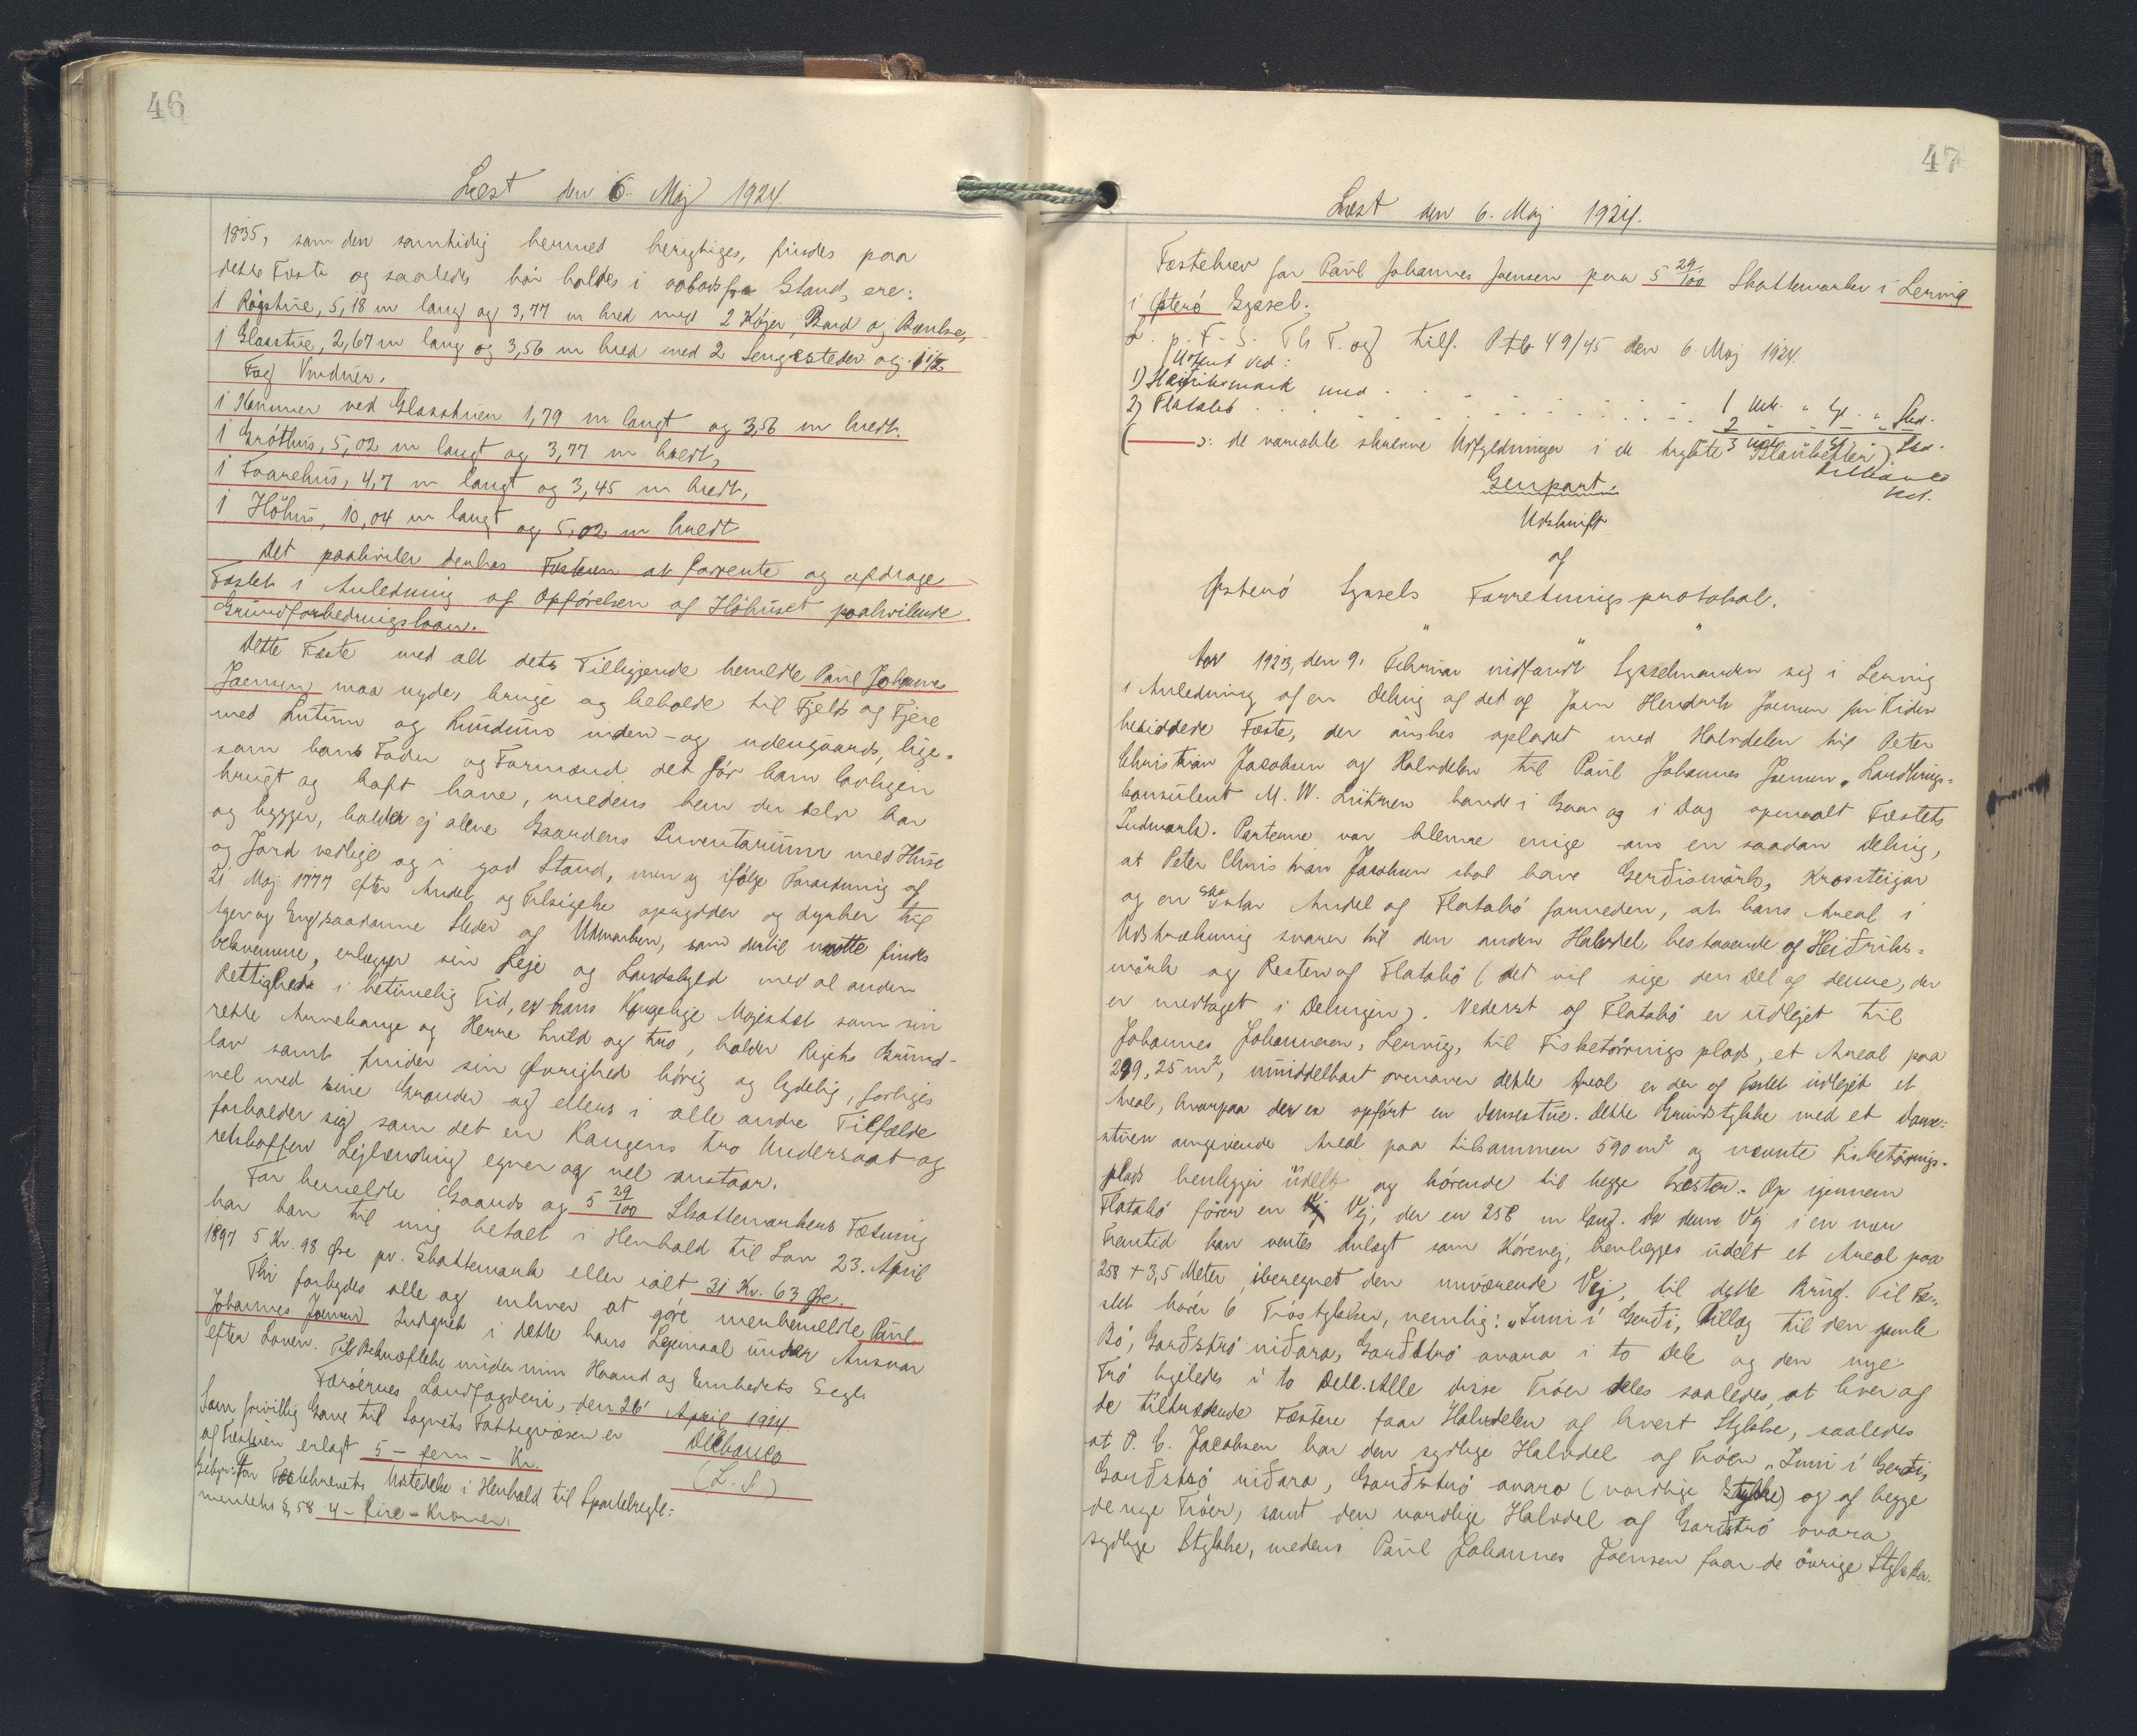 46
Læst den 6. Maj 1924
1835, som den samtidig hermed berigtiges, findes paa
dette Fæste og saaledes bör holdes i oobods fra Stand, ere:
1 Rögstue, 5,18 m lang og 3,77 m bred med 2 Köjer, Bord og Bænke,
1 Glasstue, 2,67 m lang og 3,56 m bred med 2 Sengesteder og 1 1/2
Fag Vinduer.
1 Kammer ved Glasstuen 1,79 m langt og 3,56 m bredt.
1 Gróthús, 5,02 m langt og 3,77 m bredt,
1 Faarehus, 4,7 m langt og 3,45 m bredt,
1 Höhus, 10,04 m langt og 5,02 m bredt
Det paahviler derhos Fæsteren at forrente og afdrage
Fæstet i Anledning af Opförelsen af Höhuset paahvilende
Grundforbedringslaan.
Dette Fæste med alt dets Tilliggende bemeldte Paul Johannes
Joensen maa nyde, bruge og beholde til Fjelds og Fjere
med Lutum og Lundum inden- og udengaards, lige-
som hans Fader og Formænd det för ham lovligen
brugt og haft have, imedens han der selv bor
og bygger, holder ej alene Gaardens Inventarium med Huse
og Jord vedlige og i god Stand, men og ifölge Forordning af
21 Maj 1777 efter Andel og Tilsigelse opnydder og dyrker til
Ager og Eng saadanne Steder af Udmarken, som dertil maatte findes
bekvemme, erlægger sin Leje og Landskyld med al anden
Rettighed i betimelig Tid, er hans Kongelige Majestæt som sin
rette Arvekonge og Herre huld og tro, holder Rigets Grund-
lov samt finder sin Övrighed hörig og lydelig, forliges
vel med sine Grander og ellers i alle andre Tilfælde
forholder sig, som det en Kongens tro Undersaat og
retskaffen Lejlænding egner og vel anstaar.
For bemeldte Gaards og 5 29/100 Skattemarkens Fæstning
har han til mig betalt i Henhold til Lov 23. April
1897 5 Kr. 98 Öre pr. Skattemark eller ialt 31 Kr. 63 Öre.
Thi forbydes alle og enhver at göre merbemeldte Paul
Johannes Joensen Indgreb i dette hans Lejemaal under Ansvar
efter Loven. Til Bekræftelse under min Haand og Embedets Segl.
Færöernes Landfogderi, den 26' April 1924
Som frivillig Gave til Sognets Fattigvæsen er
af Fæsteren erlagt 5 - fem - Kr.
(L. S)
Gebyr: For Fæstebrevets Udstedelse i Henhold til Sportelregle-
mentets § 58 4 - fire - Kroner.
47
Læst den 6. Maj 1924.
Fæstebrev for Paul Johannes Joensen paa 5 29/100 Skattemarker i Lervig
i Österö Syssel.
L. p. F. S. Th T. og tilf. Ptb 49/45 den 6. Maj 1924.
Udfent ved:
1) Heiðriksmark med . . . 1 Mk. " Gl. " Skd.
2) Flatabö . . . 2
(ɔ: de variable skrevne Udfyldninger i de trykte Blanketter)
Genpart.
Udskrift
af
Österö Syssels Forretningsprotokol.
Aar 1923, den 9. Februar indfandt Sysselmanden sig i Lervig
i Anledning af en Deling af det af Joen Hendrik Joensen för Tiden
besiddede Fæste, der önskes opladet med Halvdelen til Peter
Christian Jacobsen og Halvdelen til Paul Johannes Joensen. Landbrugs-
konsulent M. W. Lützen havde i Gaar og i Dag opmaalt Fæstets
Indmark. Parterne var blevne enige om en saadan Deling,
at Peter Christian Jacobsen skal have Gerðismörk, Krossteigar
og en saa stor Andel af Flatabö forneden, at hans Areal i
Udstrækning svarer til den anden Halvdel, bestaaende af Heiðriks-
mörk og Resten af Flatabö (det vil sige den Del af denne, der
er medtaget i Delingen). Nederst af Flatabö er udlejet til
Johannes Johannesen, Lervig, til Fisketörringsplads, et Areal paa
299,25 m², umiddelbart ovenover dette Areal er der af Fæstet udlejet et
Areal, hvorpaa der er opfört en Dansestue. Dette Grundstykke med et Danse-
stuen omgivende Areal paa tilsammen 590 m² og nævnte Fisketörrings-
plads henligger udelt og hörende til begge Fæster. Op igennem
Flatabö förer en Vej, der er 258 m lang. Da denne Vej i en nær
Fremtid kan ventes anlagt som Körevej, henlægges udelt et Areal paa
258 + 3,5 Meter, iberegnet den nuværende Vej, til dette Brug. Til Fæ-
stet hörer 6 Tröstykker, nemlig: "Inni i Gerði, Tillæg til den gamle
Bö, Garðströ niðara, Garðströ ovara i to Dele og den nye
Trö ligeledes i to Dele. Alle disse Tröer deles saaledes, at hver af
de tiltrædende Fæstere faar Halvdelen af hvert Stykke, saaledes
at P. C. Jacobsen har den sydlige Halvdel af Tröen "Inni i Gerði,
Garðströ niðara, Garðströ ovara (nordlige Stykke) og af begge
de nye Tröer, samt den nordlige Halvdel af Garðströ ovara
sydlige Stykke, medens Paul Johannes Joensen faar de övrige Stykker.